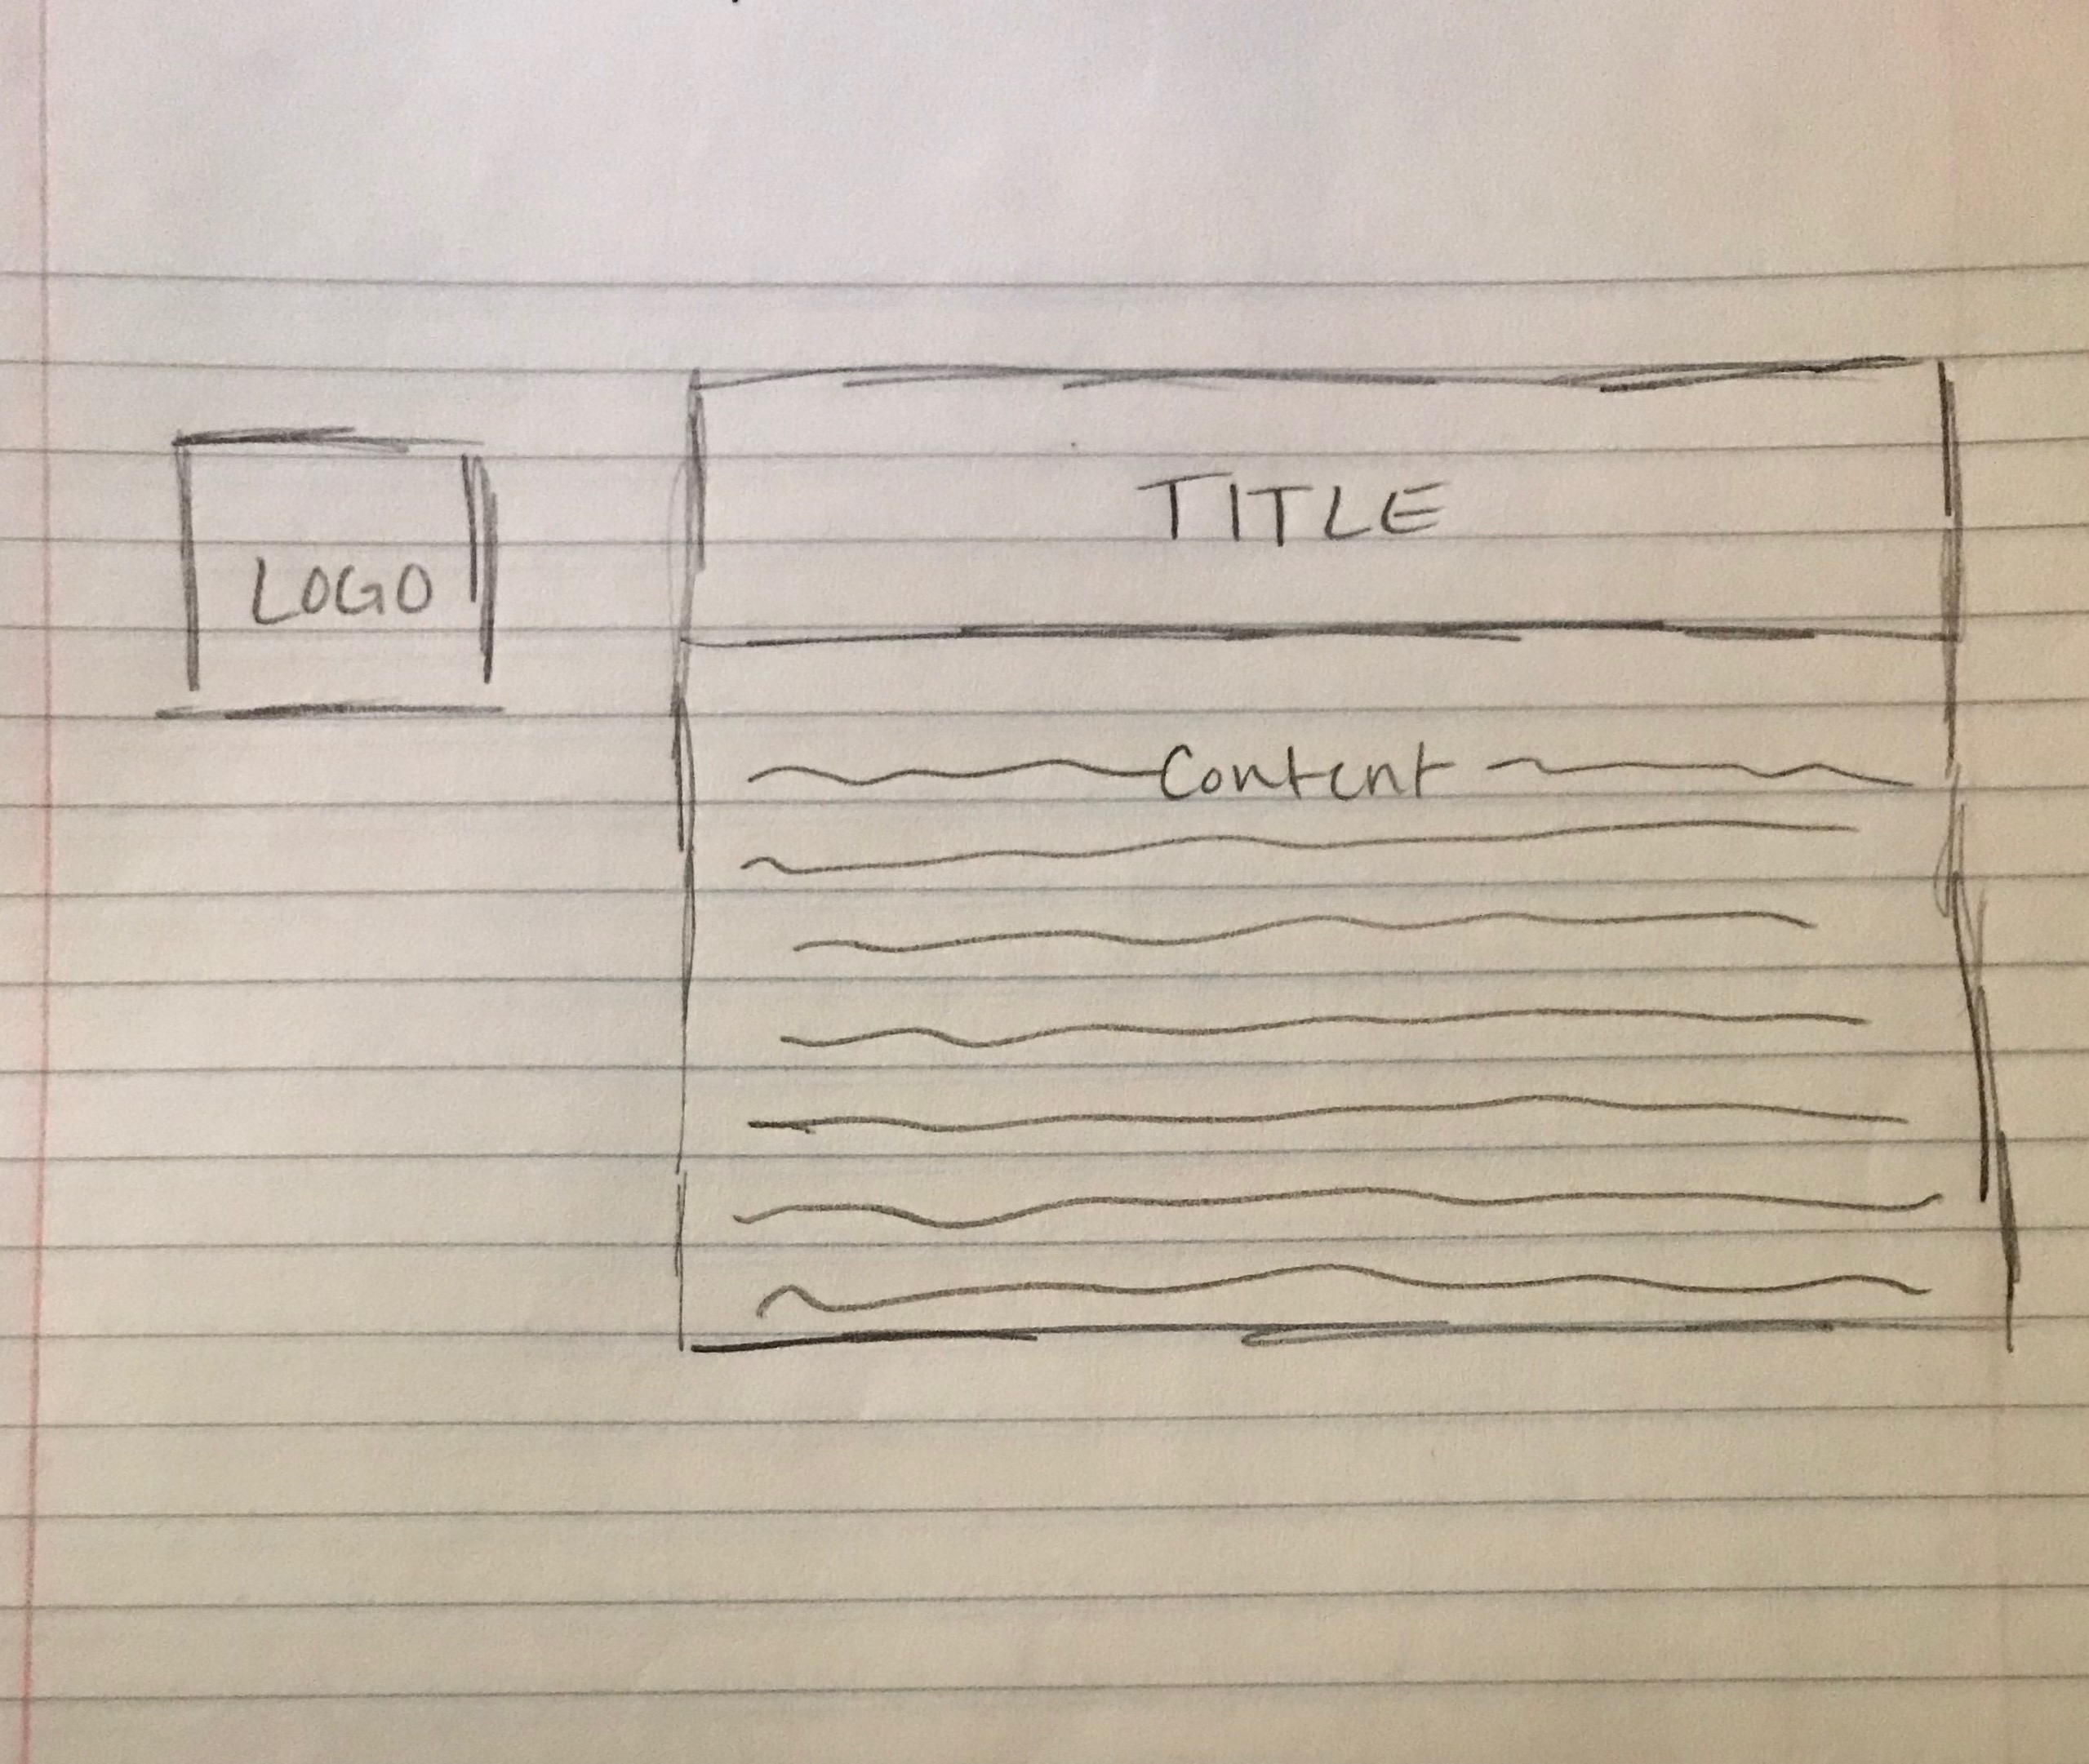 LOGO
TITLE
Content